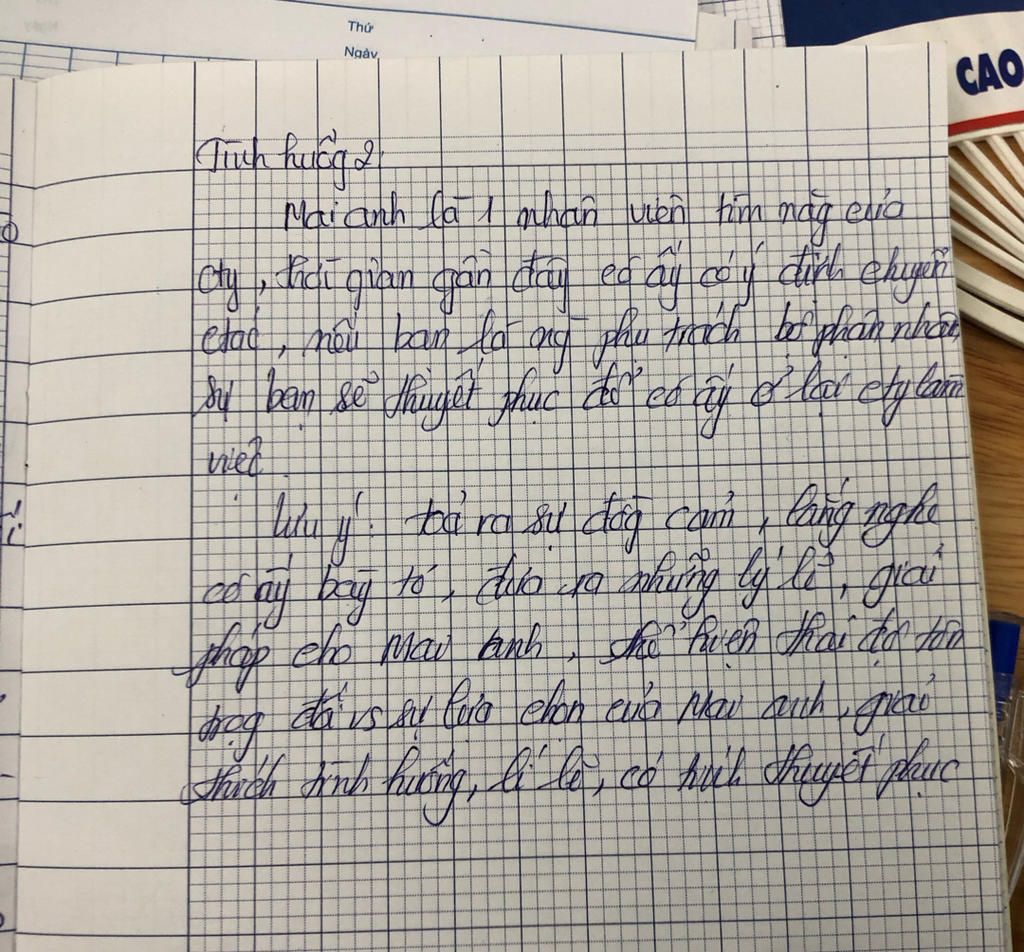 Thứ
Ngày
CAO
Tình huống 2:
Mai anh là 1 nhân viên tìm năg của
cty, thời gian gần đây cô ấy có ý định chuyển
ctác, nếu bạn là ng phụ trách bộ phận nhân
sự bạn sẽ thuyết phục để cô ấy ở lại cty làm
việc.
Lưu ý: tỏ ra sự đồg cảm, lắng nghe
cô ấy bày tỏ, đưa ra những lý lẽ, giải
pháp cho Mai Anh, thể hiện thái độ tôn
trọg đối vs sự lựa chọn của Mai anh, giải
thích tình huống, lí lẽ, có tính thuyết phục